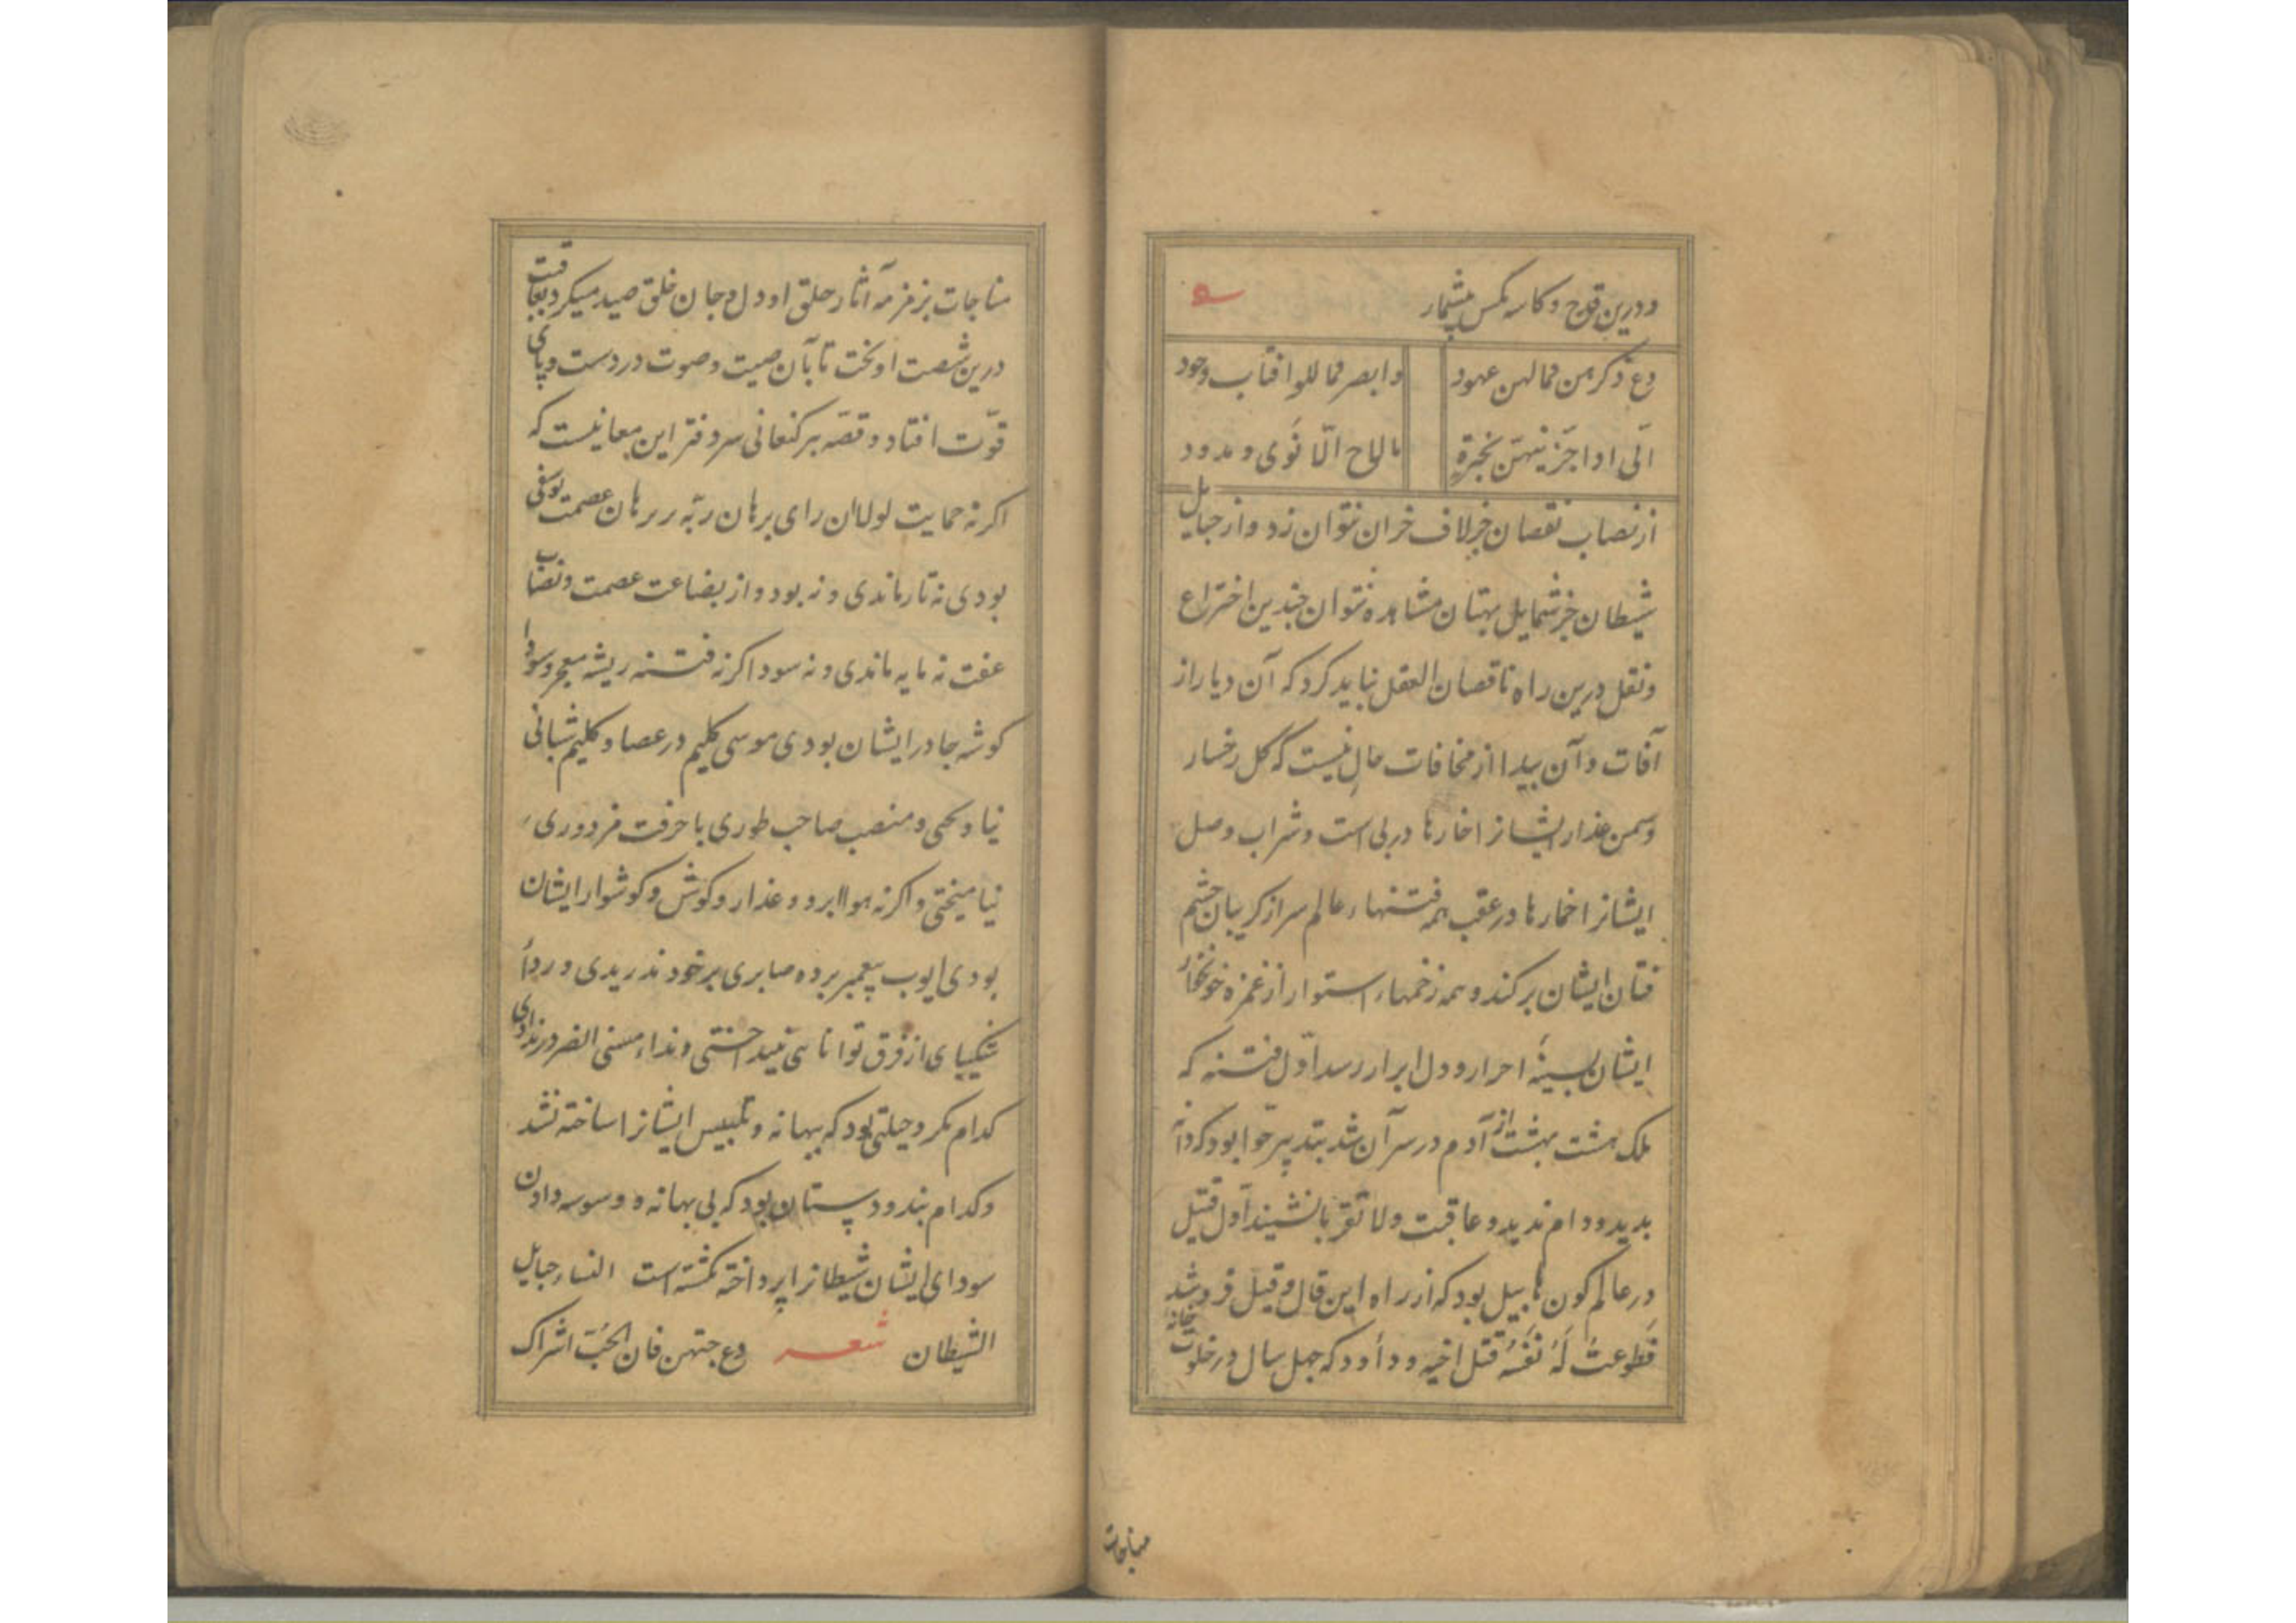 ودرین قدح و کاسه مکس بیشمار
دع ذکرهن فمالهن عهود
وابصر فما للوا افتاب وجود
الی اذا
از نصاب نقصان جز لاف خران نتوان زد و از حبایل
شیطان جز شمایل بهتان مشاهده نتوان چندین اختراع
ونقل درین راه ناقصان العقل نباید کرد که آن دیار از
آفات و آن بیدا از مخافات خالی نیست که گل رخسار
وسمن عذار ایشانرا خارها در پی است و شراب وصل
ایشانرا خمارها در عقب همه فتنها عالم سر از کریبان چشم
فتان ایشان برکند و همه زخمهاء استوار از غمزه خونخوار
ایشان بسینهٔ احرار و دل ابرار رسد اوّل فتنه که
ملک هشت بهشت از آدم در سر آن شد بتدبیر حوا بود که دانه
بدید و دام ندید و عاقبت ولا تقربا نشیند اول قتیل
در عالم کون هابیل بود که از راه این قال و قیل فرو شد
فطوعت له نفسه قتل اخیه و داود که چهل سال در خلوت خانه
مناجات
مناجات بزمزمه آثار حلق او دل و جان خلق صید میکرد بعاقبت
درین شصت اوخت تا بآن صیت و صوت در دست و پای
قوّت افتاد و قصّه پیر کنعانی سر دفتر این معانیست که
اکر نه حمایت لولا ان رای برهان ربّه بر برهان عصمت یوسفی
بودی نه تار ماندی و نه بود و از بضاعت عصمت و نصاب
عفت نه مایه ماندی و نه سود اکر نه فتنه ریشه معجر و سودا
کوشه جادر ایشان بودی موسی کلیم در عصا و کلیم شبانی
نیاویحی و منصب صاحب طوری با حرفت مزدوری
نیامیختی و اکر نه هوا ابرو و عذار و کوش و کوشوار ایشان
بودی ایوب پیغمبر برده صابری بر خود ندریدی و رداء
شکیبای از فرق توانایی نینداختی و نداء مسنی الضر در ندادی
کدام مکر و حیلتی بود که ببهانه و تلبیس ایشانرا ساخته نشد
وکدام بند و دستان بود که بی بهانه و وسوسه دادن
سودای ایشان شیطانرا پرداخته کشته است النساء حبایل
الشیطان شعر دع حبّهن فان الحبّ اشراک